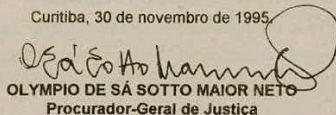 Curitiba, 30 de novembro de 1995.
OLYMPIO DE SÁ SOTTO MAIOR NETO
Procurador-Geral de Justiça